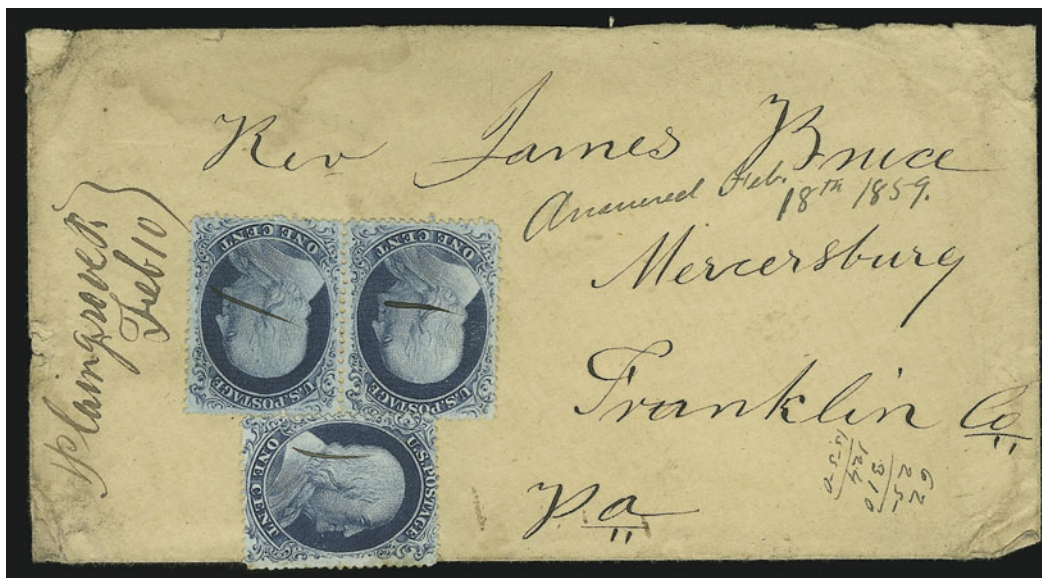 Rev James Bruce
Answered Feb. 18th 1859.
Mercersburg
Franklin Co
Pa
Plaingrove Pa
Feb 10
ONE CENT
U.S.POSTAGE
ONE CENT
U.S.POSTAGE
ONE CENT
U.S.POSTAGE
62
25
310
124
1550